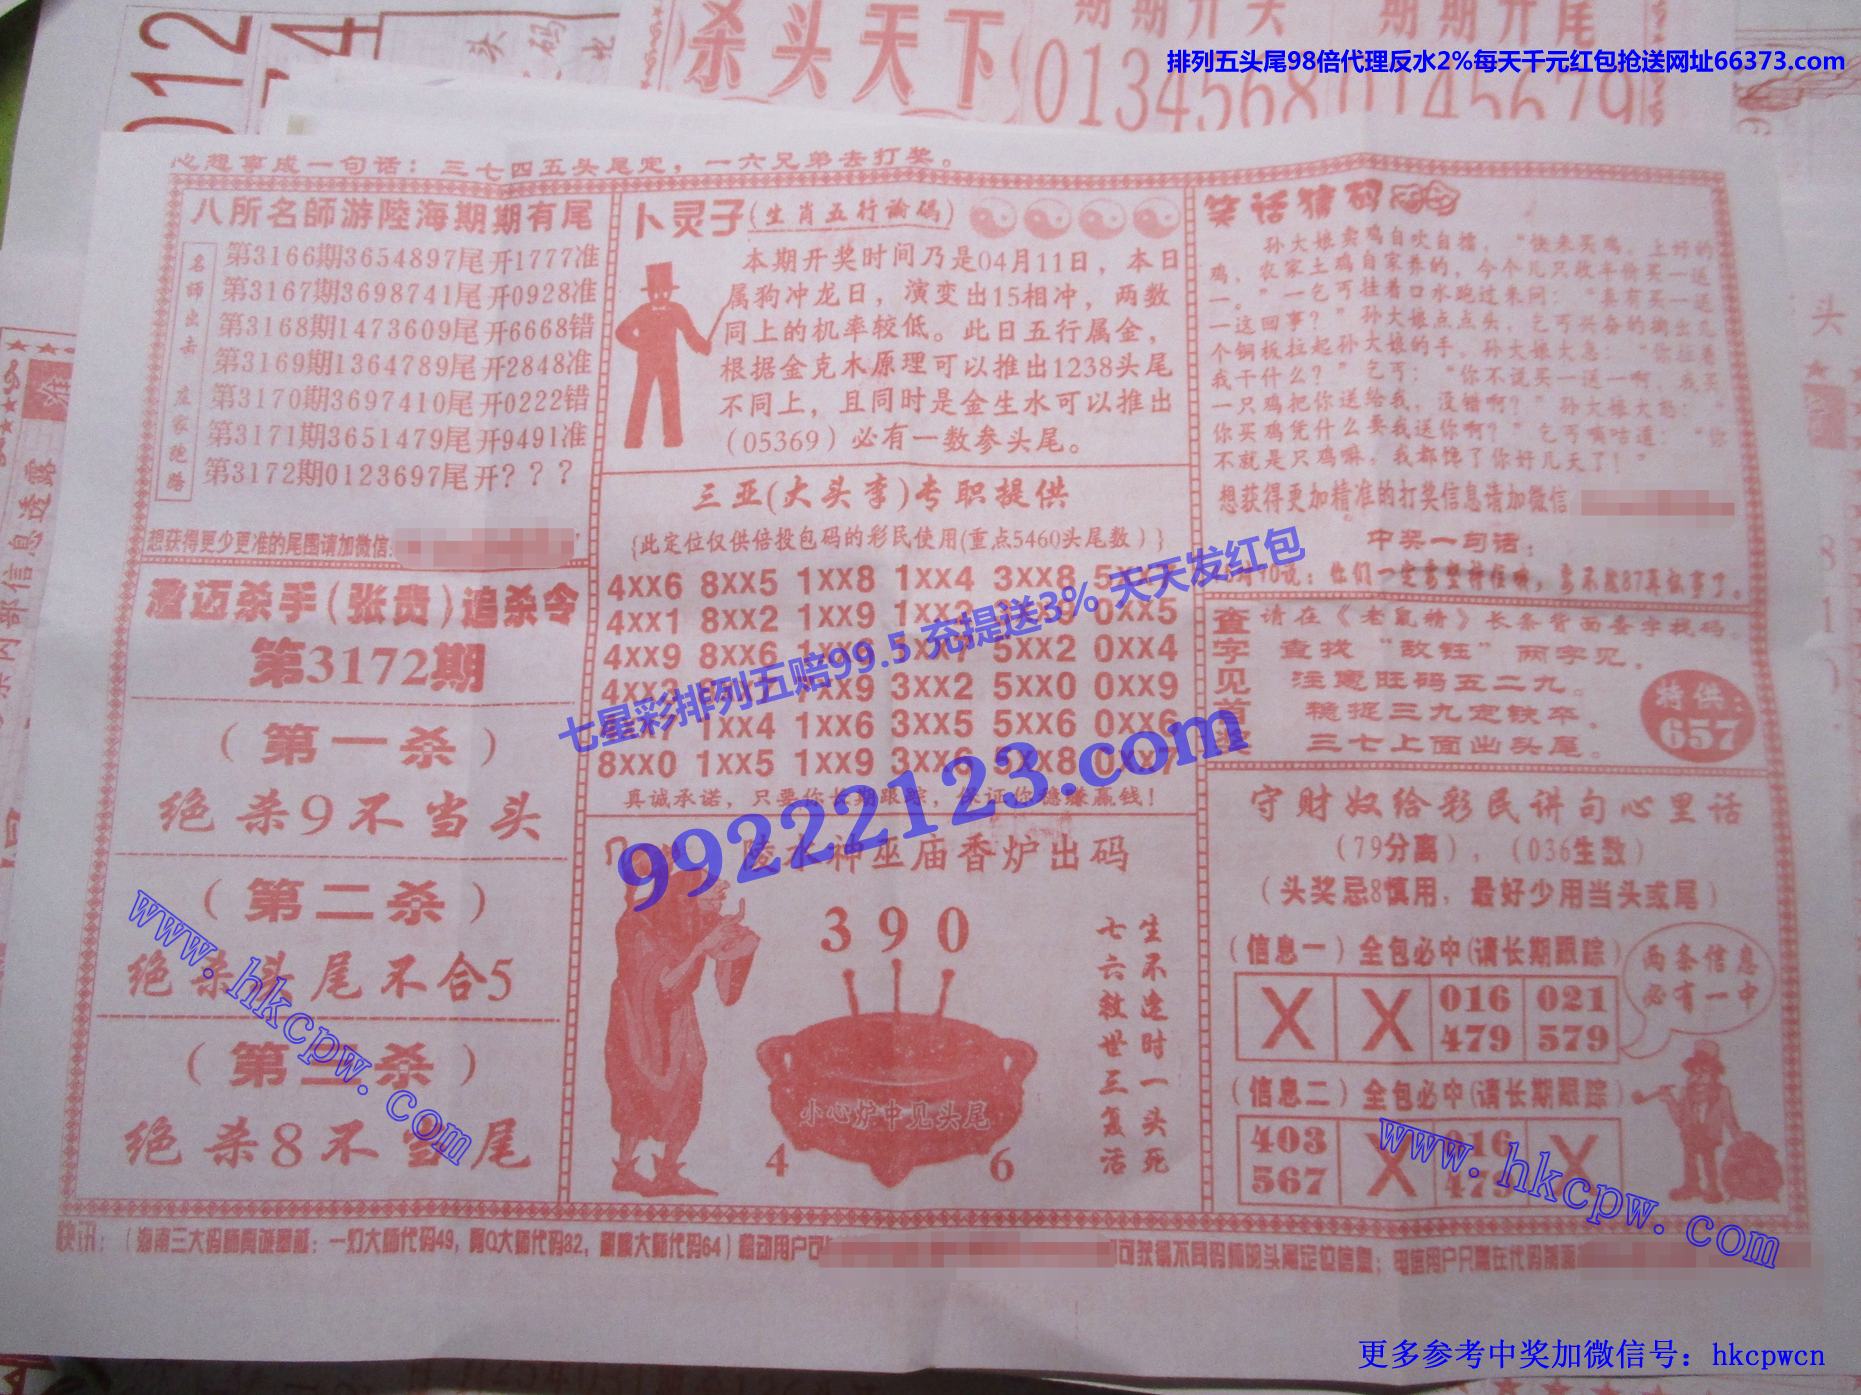 012
74
头 码
杀头天下
期期开头
期期开尾
01345689
排列五头尾98倍代理反水2%每天千元红包抢送网址66373.com
心想事成一句话：三七四五头尾定，一六兄弟去打奖。
八所名師游陸海期期有尾
名師出击 庄家跑路
第3166期3654897尾开1777准
第3167期3698741尾开0928准
第3168期1473609尾开6668错
第3169期1364789尾开2848准
第3170期3697410尾开0222错
第3171期3651479尾开9491准
第3172期0123697尾开？？？
想获得更少更准的尾围请加微信
澄迈杀手（张贵）追杀令
第3172期
（第一杀）
绝杀9不当头
（第二杀）
绝杀头尾不合5
（第三杀）
绝杀8不当尾
卜灵子(生肖五行论码)
本期开奖时间乃是04月11日，本日
属狗冲龙日，演变出15相冲，两数
同上的机率较低。此日五行属金，
根据金克木原理可以推出1238头尾
不同上，且同时是金生水可以推出
（05369）必有一数参头尾。
三亚(大头李)专职提供
{此定位仅供倍投包码的彩民使用(重点5460头尾数）}
4XX6 8XX5 1XX8 1XX4 3XX8
4XX1 8XX2 1XX9 0XX5
4XX9 8XX6 5XX2 0XX4
3XX2 5XX0 0XX9
1XX4 1XX6 3XX5 5XX6 0XX6
8XX0 1XX5 1XX9 3XX6 5XX8 0XX7
真诚承诺，只要你长期跟踪，保证你稳赚赢钱！
七星彩排列五赔99.5 充提送3% 天天发红包
99222123.com
陵水神巫庙香炉出码
390
小心炉中见头尾
4 6
生不逢时一头死
七六救世三复活
笑话猜码
孙大娘卖鸡自吹自擂，“快来买鸡，上好的
鸡，农家土鸡自家养的，今个几只收半价买一送
一。”一乞丐挂着口水跑过来问：“真有买一送
一这回事？”孙大娘点点头，乞丐兴奋的掏出几
个铜板拉起孙大娘的手，孙大娘大急：“你拉着
我干什么？”乞丐：“你不说买一送一啊，我买
一只鸡把你送给我，没错啊？”孙大娘大怒：“
你买鸡凭什么要我送你啊？”乞丐嘀咕道：“你
不就是只鸡嘛，我都馋了你好几天了！”
想获得更加精准的打奖信息请加微信
中奖一句话：
查字见首奖
请在《老鼠精》长条背面查字找码。
查找“敌钰”两字见，
注意旺码五二九。
稳捉三九定铁卒，
三七上面出头尾。
特供：
657
守财奴给彩民讲句心里话
（79分离），（036生数）
（头奖忌8慎用，最好少用当头或尾）
（信息一）全包必中(请长期跟踪）
X X 016 021
479 579
两条信息
必有一中
（信息二）全包必中(请长期跟踪）
403 X 016 X
567 479
快讯：（海南三大码师真诚奉献：一灯大师代码49，阿Q大师代码82，代码64）移动用户可
可获得不同码师的头尾定位信息；电信用户只需在代码前
www.hkcpw.com
www.hkcpw.com
更多参考中奖加微信号：hkcpwcn